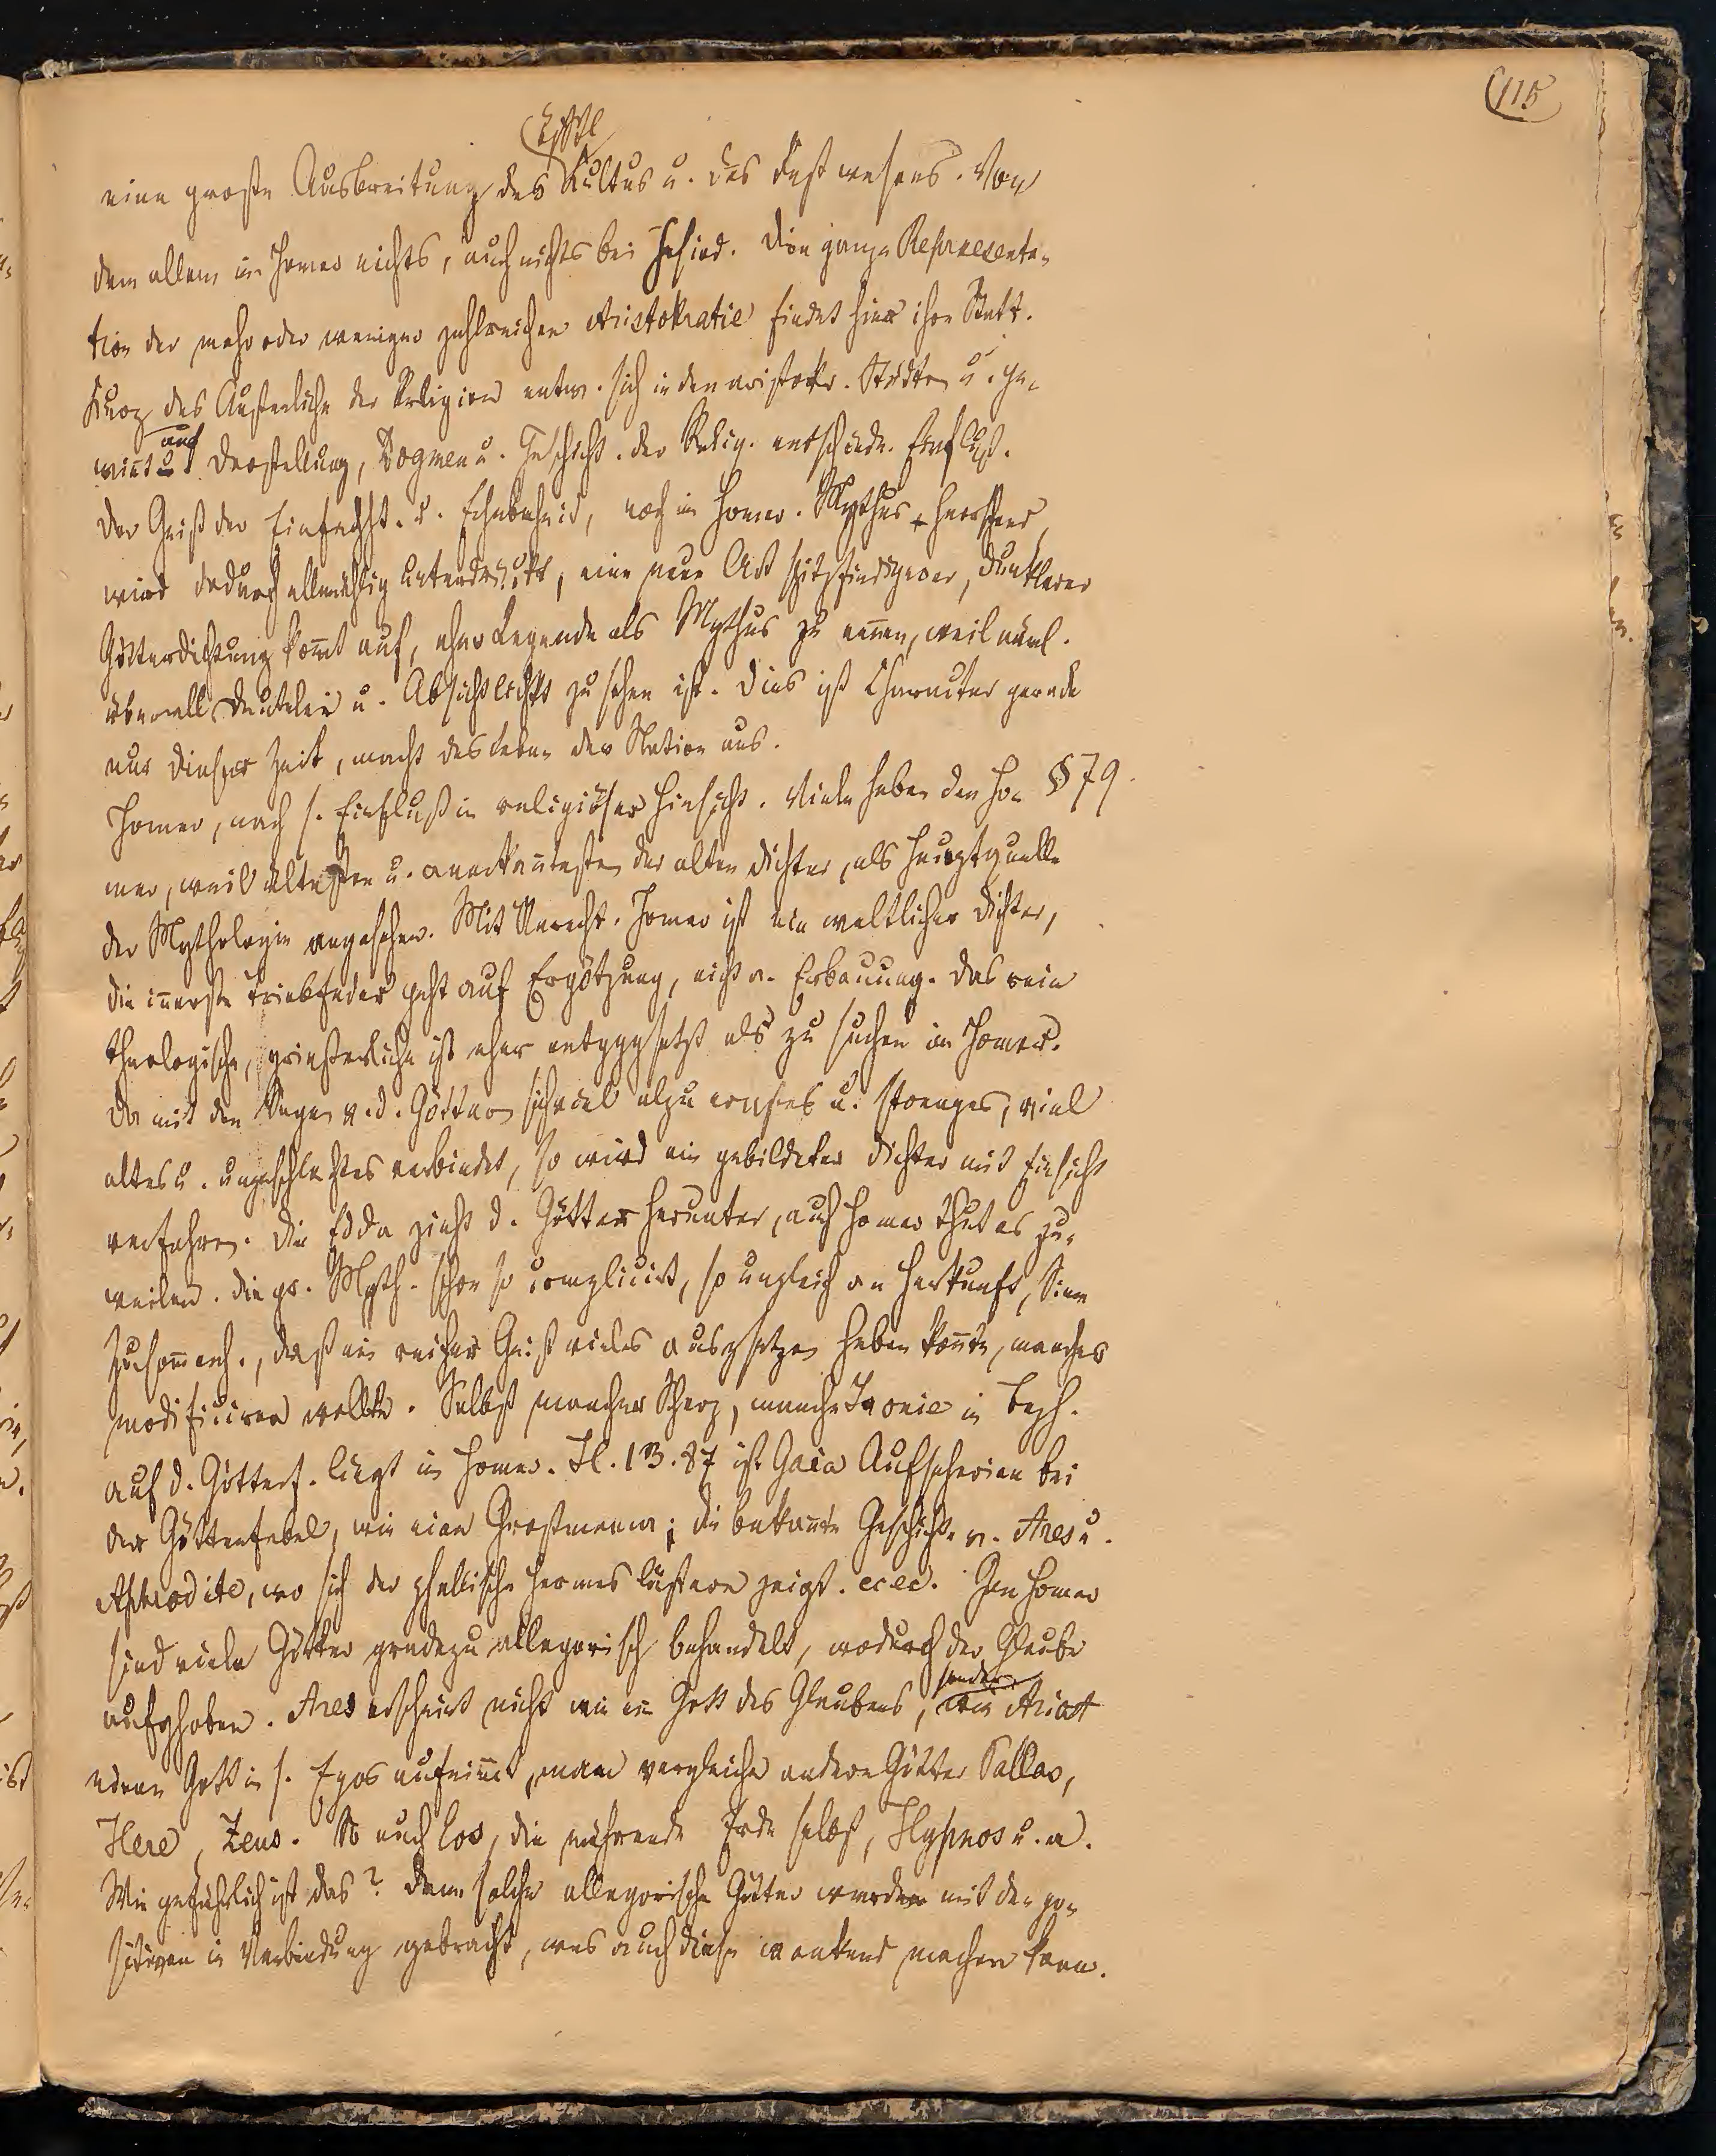 115
eine große Ausbreitung des Kultus u. des Festwesens. Von
dem allem im Homer nichts, auch nichts bei Hesiod. Die ganze Repraesenta-
tion der mehr oder weniger zahlreichen Aristokratie findet hier ihre Statt.
Kurz das Äußerliche der Religion entw. sich in den aristokr. Städten u. ge-
wint auf Darstellung, Dogmen u. Geschicht. der Relig. entschiedn. Einfluß.
Der Geist der Einfachht. u. Erhabenheit, noch im Homer. Mythus herrschend,
wird dadurch allmählig unterdrückt, eine neue Art spitzfindigerer, dunklerer
Götterdichtung komt auf, eher Legende als Mythus zu nennen, weil näml.
überall Deutelei u. Absichtlichkt zu sehen ist. Dies ist Character gerade
nur dieser Zeit, macht das Leben der Nation aus.
Homer, nach s. Einfluß in religiöser Hinsicht. Viele haben den Ho- § 79.
mer, weil ältesten u. anerkantesten der alten Dichter, als Hauptquelle
der Mythologie angesehen. Mit Unrecht. Homer ist ein weltlicher Dichter,
die innerste Triebfeder geht auf Ergötzung, nicht a. Erbauung. Das rein
theologische, priesterliche ist eher entgggesetzt als zu suchen im Homer.
Da mit den Sagen v. d. Göttern sich viel alzu ernstes u. strenges, viel
altes u. ungeschlachtes verbindet, so wird ein gebildeter Dichter mit Einsicht
verfahren. Die Edda zieht d. Götter herunter, auch Homer thut es zu-
weilen. Die gr. Myth. schon so complicirt, so ungleich an Herkunft, Sinn
Zusammenh., daß ein reicher Geist vieles auszusetzen haben konnte, manches
modificiren wollte. Selbst mancher Scherz, manche Ironie in Bezh.
auf d. Götterf. liegt im Homer. Il. 13. 87 ist Gaia Aufseherinn bei
der Götterfabel, wie eine Großmama; die bekannte Geschicht. v. Ares u.
Aphrodite, wo sich der phallische Hermes lüstern zeigt. ecec. Im Homer
sind viele Götter gradezu allegorisch behandelt, wodurch der Glaube
aufghoben. Ares erscheint nicht wie ein Gott des Glaubens, sondern wie Ariost
einen Gott in s. Epos aufnimt, man vergleiche andere Götter Pallas,
Here, Zeus. So auch Eos, die nährende Erde selbst, Hypnos u. a.
Wie gefährlich ist das? Denn solche allegorische Götter werden mit den po-
sitiven in Verbindung gebracht, was auch diese wankend machen kann.